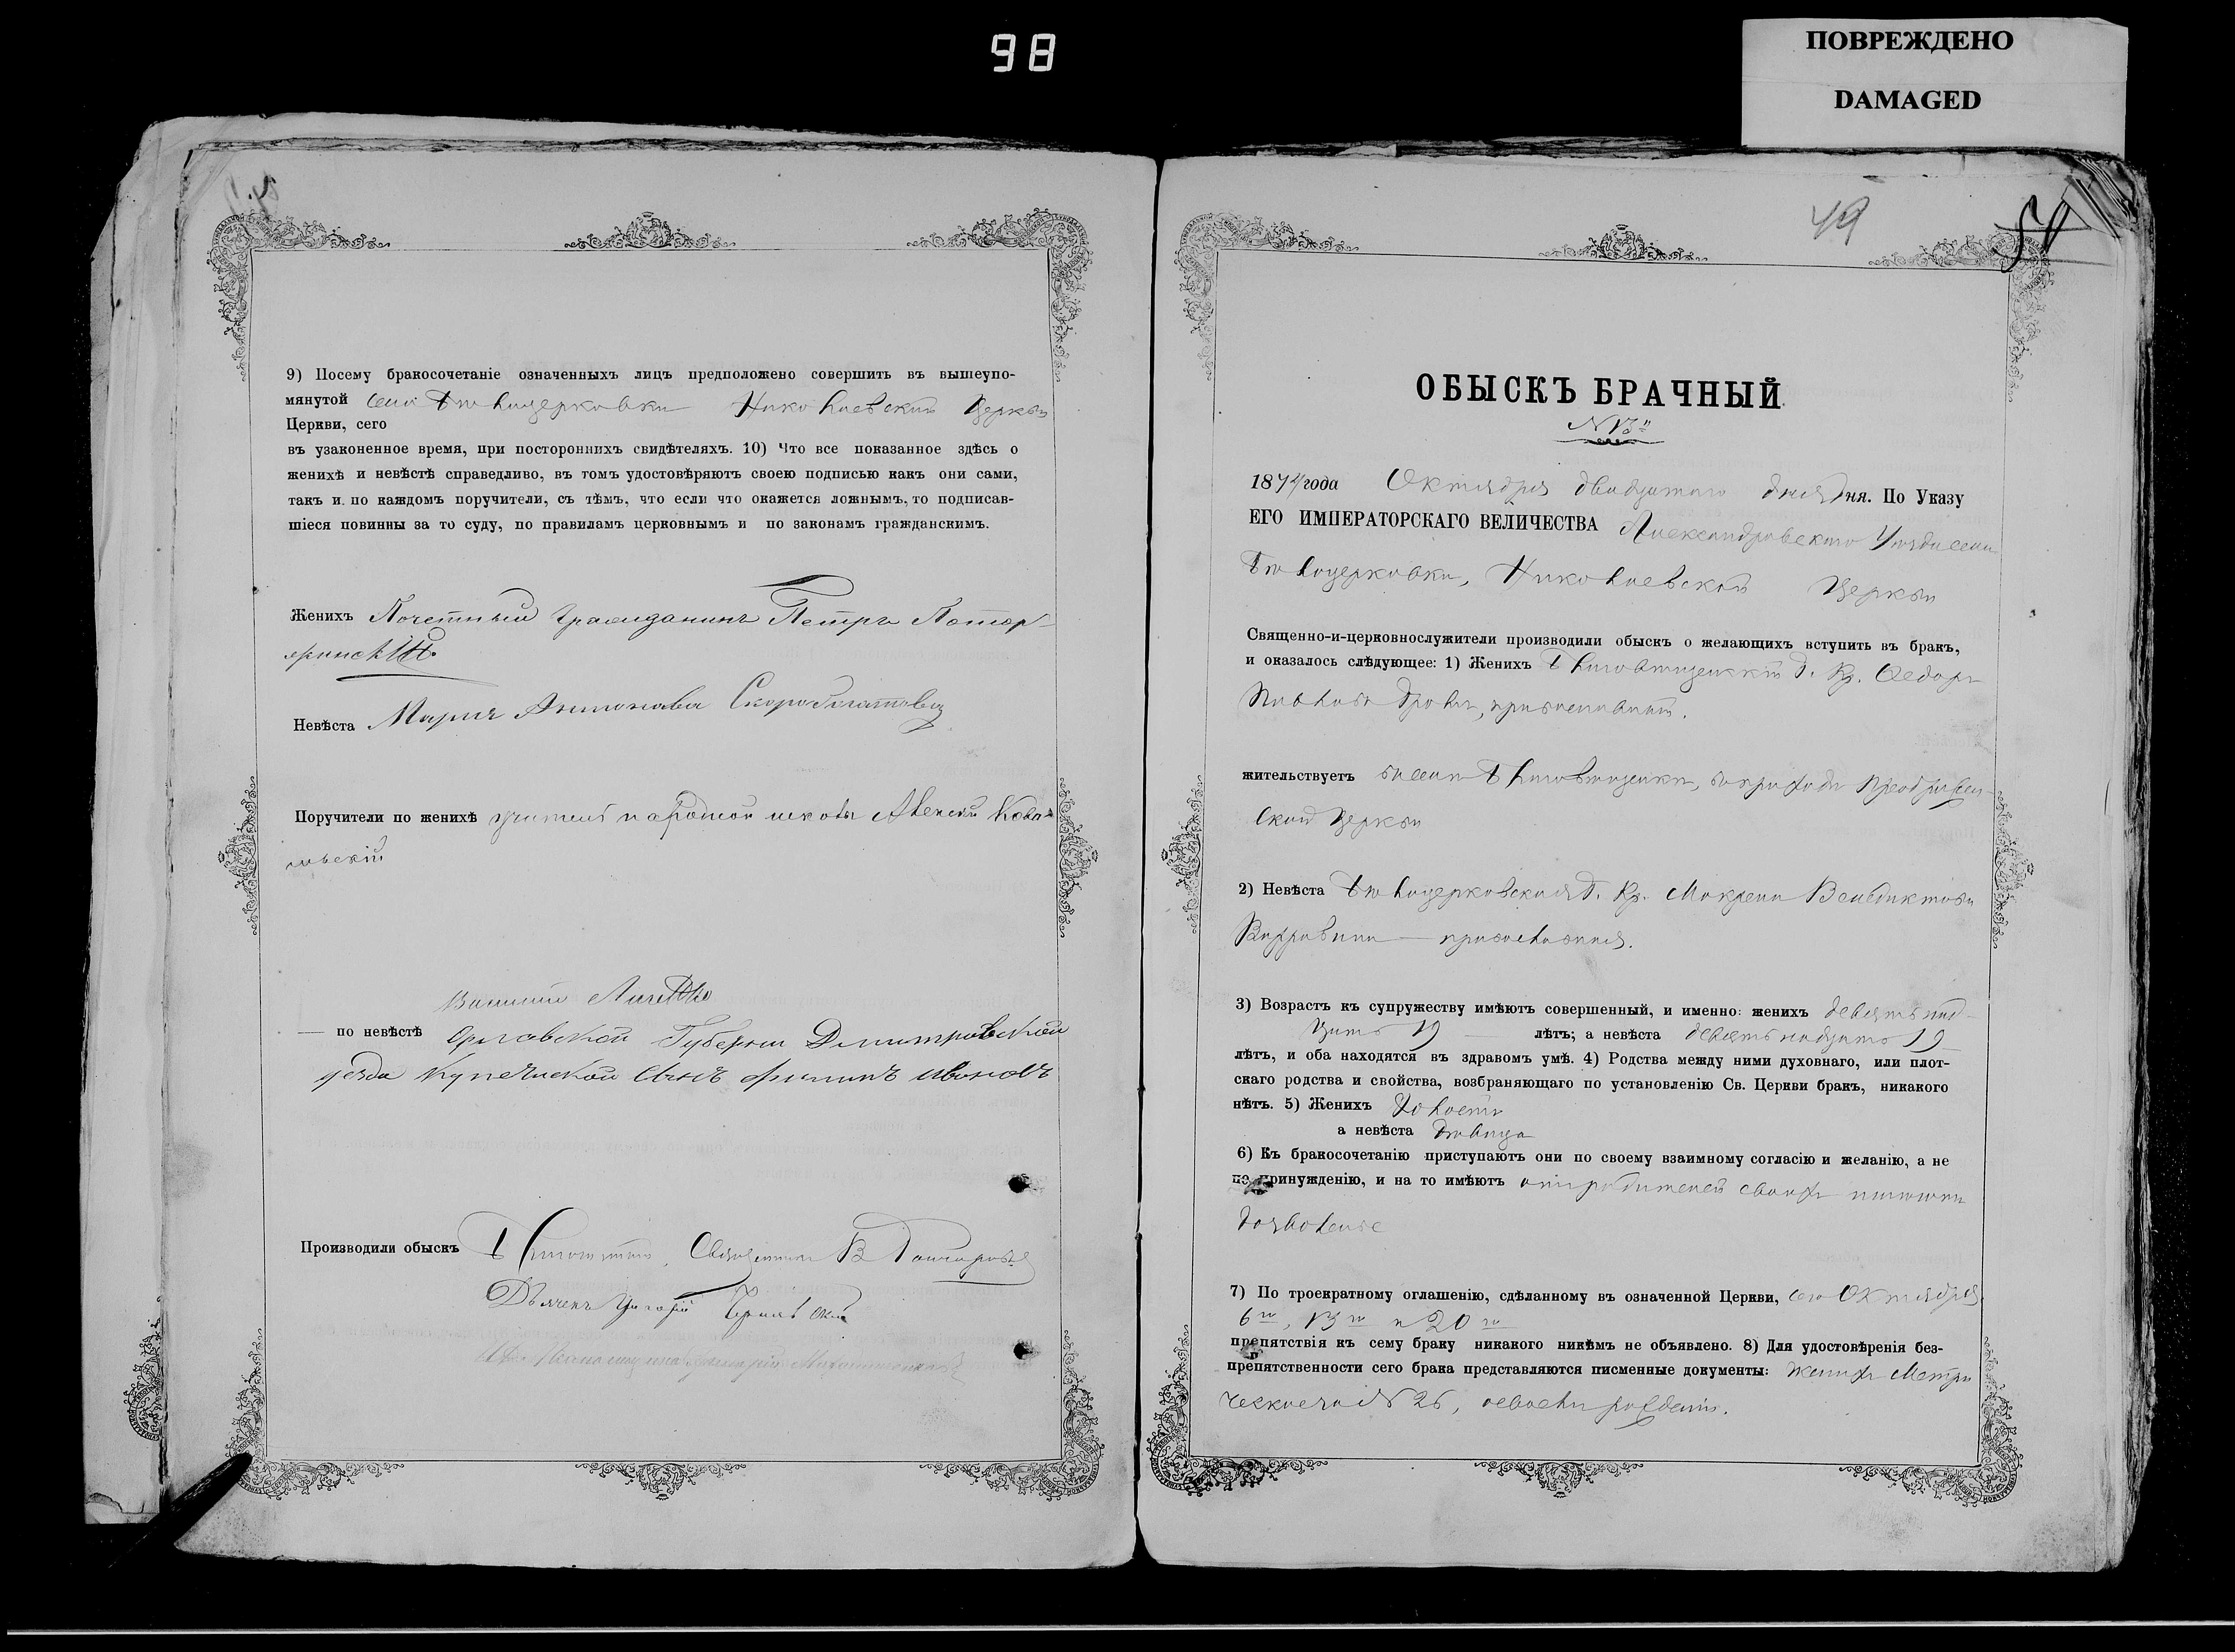 98
ПОВРЕЖДЕНО
DAMAGED
9) Посему бракосочетаніе означенныхъ лицъ предположено совершить въ вышеупо-
мянутой села Бѣлоцерковки Николаевской Церкви
Церкви, сего
въ узаконенное время, при постороннихъ свидѣтеляхъ. 10) Что все показанное здѣсь о
женихѣ и невѣстѣ справедливо, въ томъ удостовѣряютъ своею подписью какъ они сами,
такъ и по каждомъ поручители, съ тѣмъ, что если что окажется ложнымъ, то подписав-
шіеся повинны за то суду, по правиламъ церковнымъ и по законамъ гражданскимъ.
Женихъ Почетный Гражданинъ Петръ
Невѣста Марія Антонова Скоробогатова
Поручители по женихѣ учитель народной школы Алексѣй
Василій
— по невѣстѣ Орловской Губерніи Дмитровской
уезда Купеческой Сынъ Филипъ Ивановъ
Производили обыскъ Священникъ В
Григорій
49
50
ОБЫСКЪ БРАЧНЫЙ
N 13
1874 года Октября двадцатаго дня дня. По Указу
ЕГО ИМПЕРАТОРСКАГО ВЕЛИЧЕСТВА Александровскаго Уѣзда села
Бѣлоцерковки, Николаевской Церкви
Священно-и-церковнослужители производили обыскъ о желающихъ вступить въ бракъ,
и оказалось слѣдующее: 1) Женихъ Кр. Ѳедоръ
Павловъ православный.
жительствуетъ въ селѣ въ приходѣ Преображен-
ской Церкви
2) Невѣста Бѣлоцерковская Кр. Макрина Венедиктова
православная.
3) Возрастъ къ супружеству имѣютъ совершенный, и именно: женихъ девятьнад-
цать 19 лѣтъ; а невѣста девятьнадцать 19
лѣтъ, и оба находятся въ здравомъ умѣ. 4) Родства между ними духовнаго, или плот-
скаго родства и свойства, возбраняющаго по установленію Св. Церкви бракъ, никакого
нѣтъ. 5) Женихъ холостъ
а невѣста дѣвица
6) Къ бракосочетанію приступаютъ они по своему взаимному согласію и желанію, а не
по принужденію, и на то имѣютъ отъ родителей своихъ
дозволеніе
7) По троекратному оглашенію, сдѣланному въ означенной Церкви, сего Октября
6го, 13го и 20го
препятствія къ сему браку никакого никѣмъ не объявлено. 8) Для удостовѣренія без-
препятственности сего брака представляются писменные документы: женихъ Метри
ческое N 26, о своемъ рожденіи.